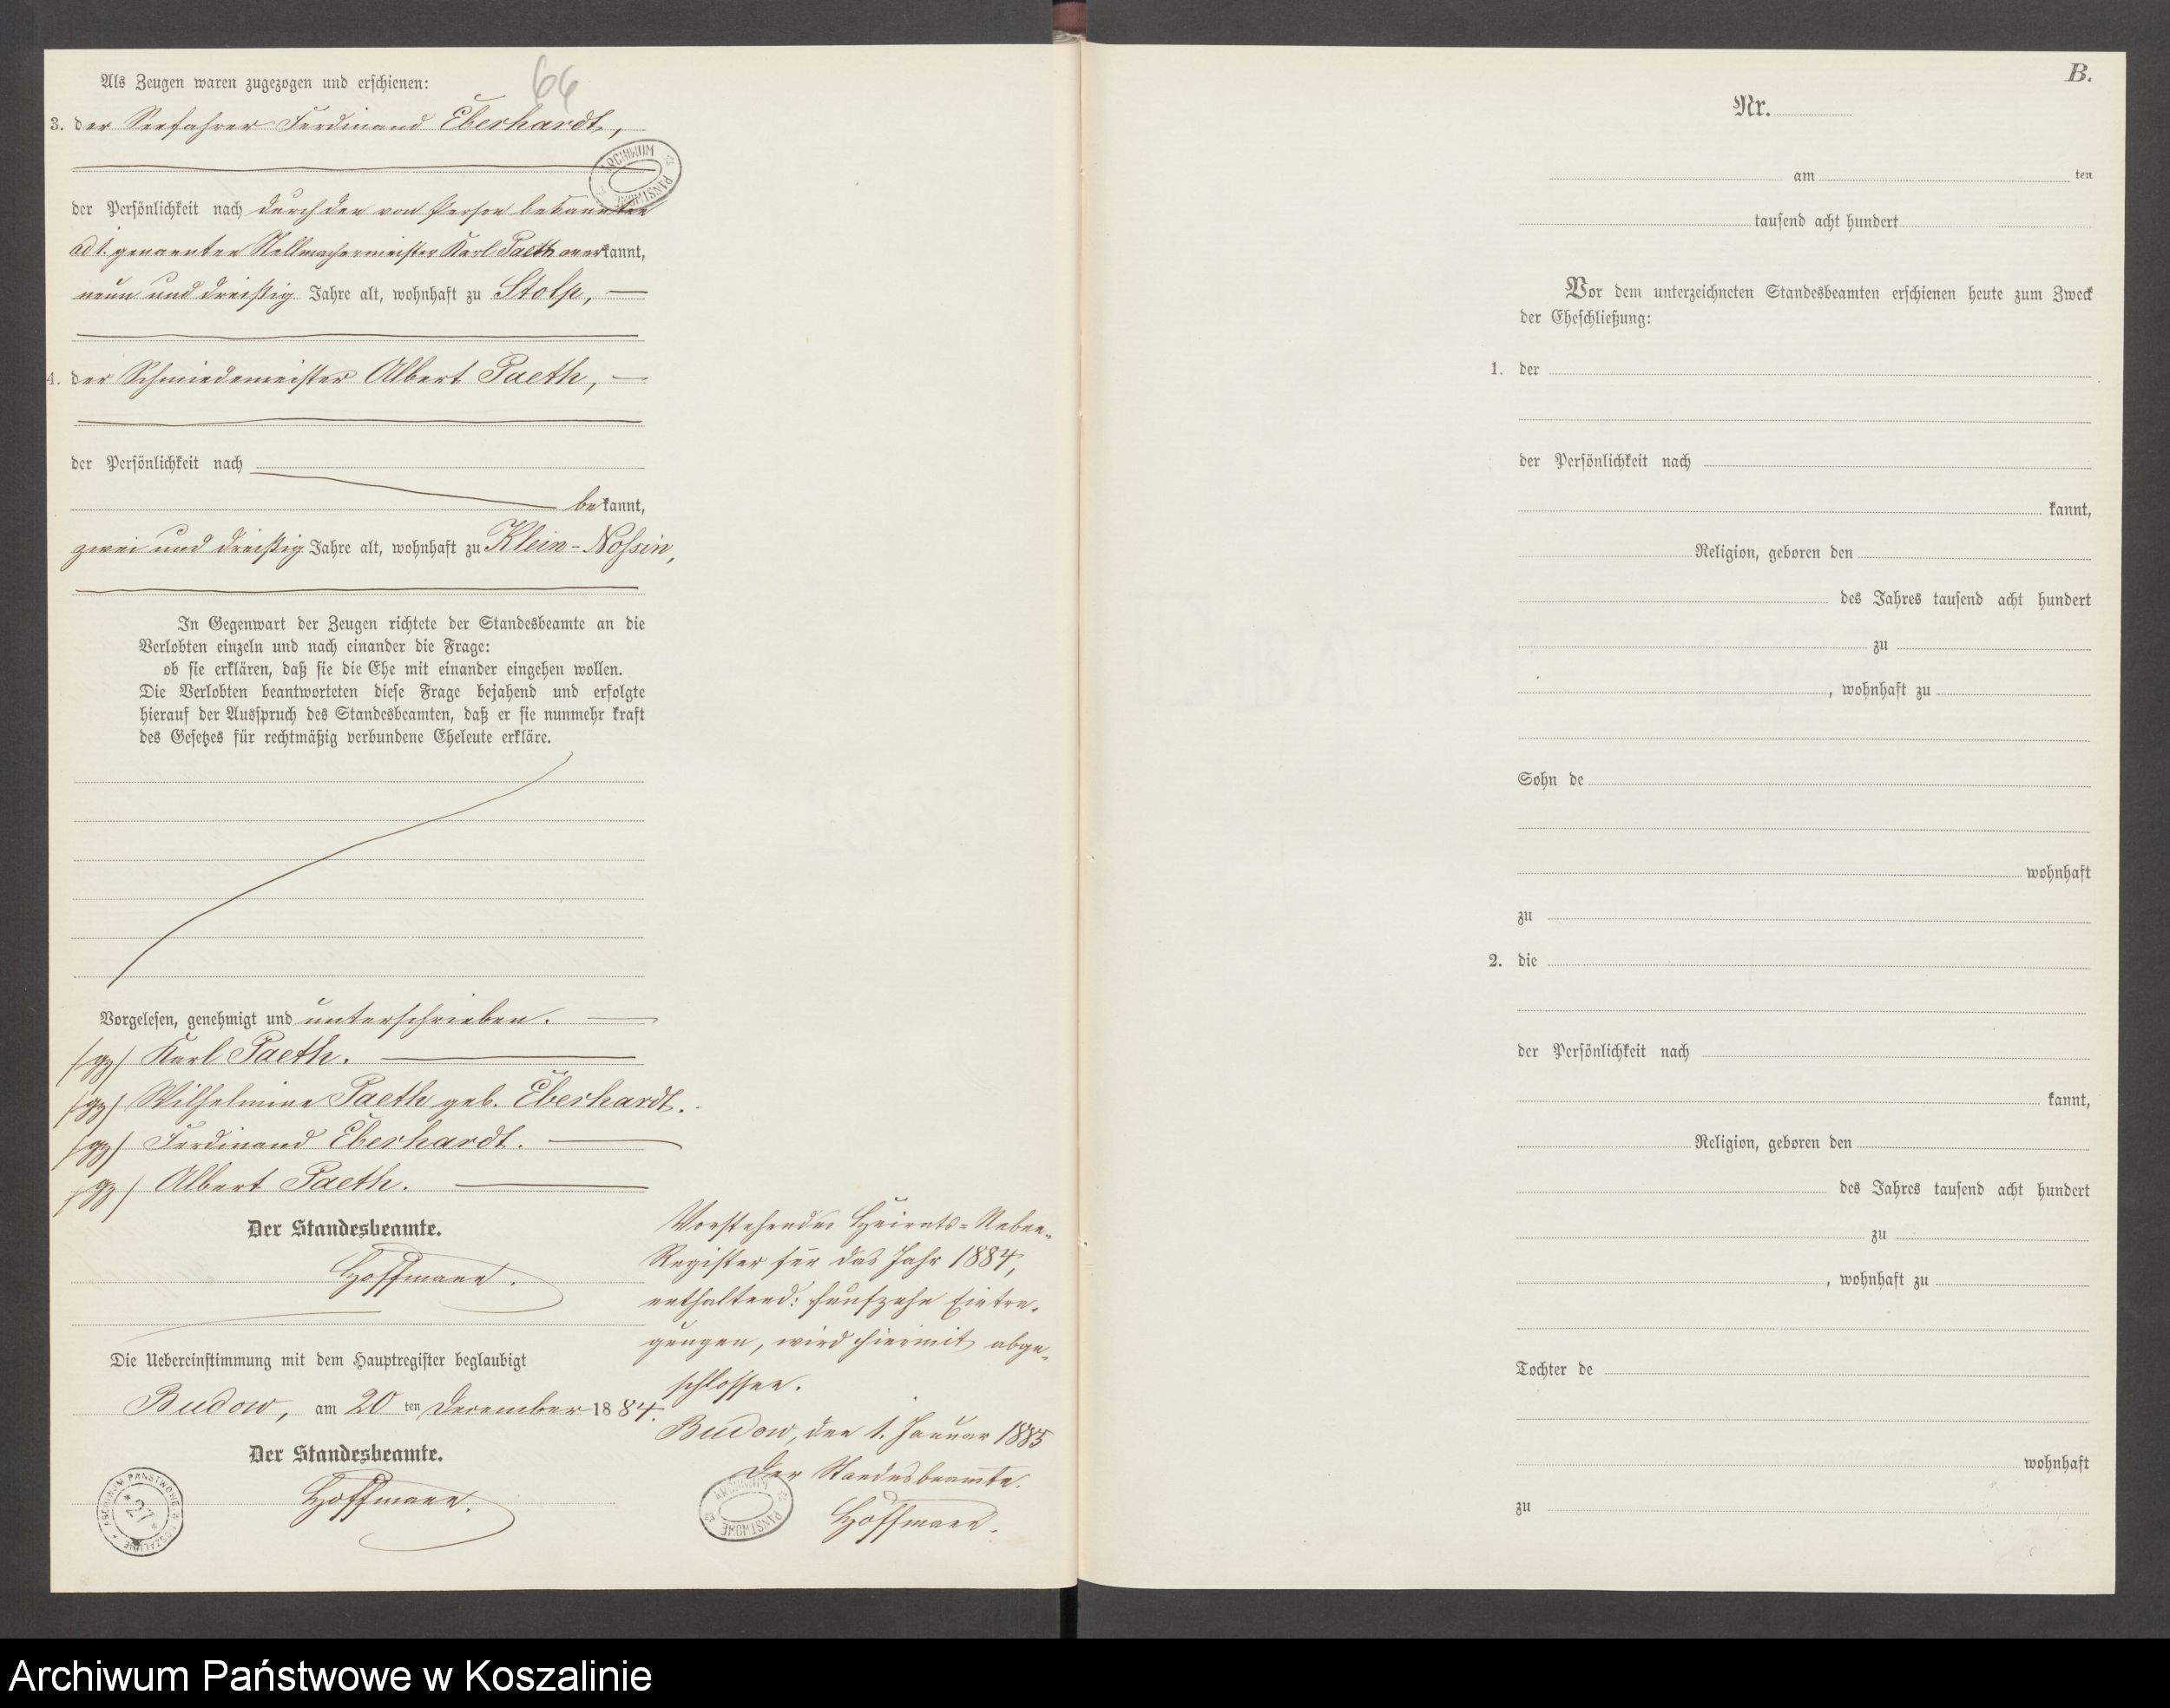 66
Als Zeugen waren zugezogen und erschienen:
3. der Seefahrer Ferdinand Eberhardt,
ARCHIWUM PAŃSTWOWE
der Persönlichkeit nach durch den von Person bekannten
ad 1. genannten Stellmachermeister Karl Paeth anerkannt,
neun und dreißig Jahre alt, wohnhaft zu Stolp,
4. der Schmiedemeister Albert Paeth,
der Persönlichkeit nach
bekannt,
zwei und dreißig Jahre alt, wohnhaft zu Klein-Nossin,
In Gegenwart der Zeugen richtete der Standesbeamte an die
Verlobten einzeln und nach einander die Frage:
ob sie erklären, daß sie die Ehe mit einander eingehen wollen.
Die Verlobten beantworteten diese Frage bejahend und erfolgte
hierauf der Ausspruch des Standesbeamten, daß er sie nunmehr kraft
des Gesetzes für rechtmäßig verbundene Eheleute erkläre.
Vorgelesen, genehmigt und unterschrieben.
/gz/ Karl Paeth.
/gz/ Wilhelmine Paeth geb. Eberhardt.
/gz/ Ferdinand Eberhardt.
/gz/ Albert Paeth.
Der Standesbeamte.
Hoffmann.
Die Uebereinstimmung mit dem Hauptregister beglaubigt
Budow, am 20 ten December 1884.
Der Standesbeamte.
Hoffmann.
ARCHIWUM PAŃSTWOWE W KOSZALINIE
* 27 *
Vorstehendes Heirats-Neben-
Register für das Jahr 1884,
enthaltend: fünfzehn Eintra-
gungen, wird hiermit abge-
schlossen.
Budow, den 1. Januar 1885
Der Standesbeamte.
Hoffmann.
ARCHIWUM PAŃSTWOWE
B.
Nr.
am ten
tausend acht hundert
Vor dem unterzeichneten Standesbeamten erschienen heute zum Zweck
der Eheschließung:
1. der
der Persönlichkeit nach
kannt,
Religion, geboren den
des Jahres tausend acht hundert
zu
, wohnhaft zu
Sohn de
wohnhaft
zu
2. die
der Persönlichkeit nach
kannt,
Religion, geboren den
des Jahres tausend acht hundert
zu
, wohnhaft zu
Tochter de
wohnhaft
zu
Archiwum Państwowe w Koszalinie